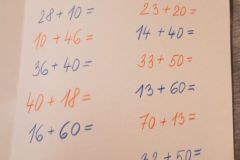 28+10=
10+46=
36+40=
40+18=
16+60=
23+20=
14+40=
33+50=
13+60=
70+13=
32+50=